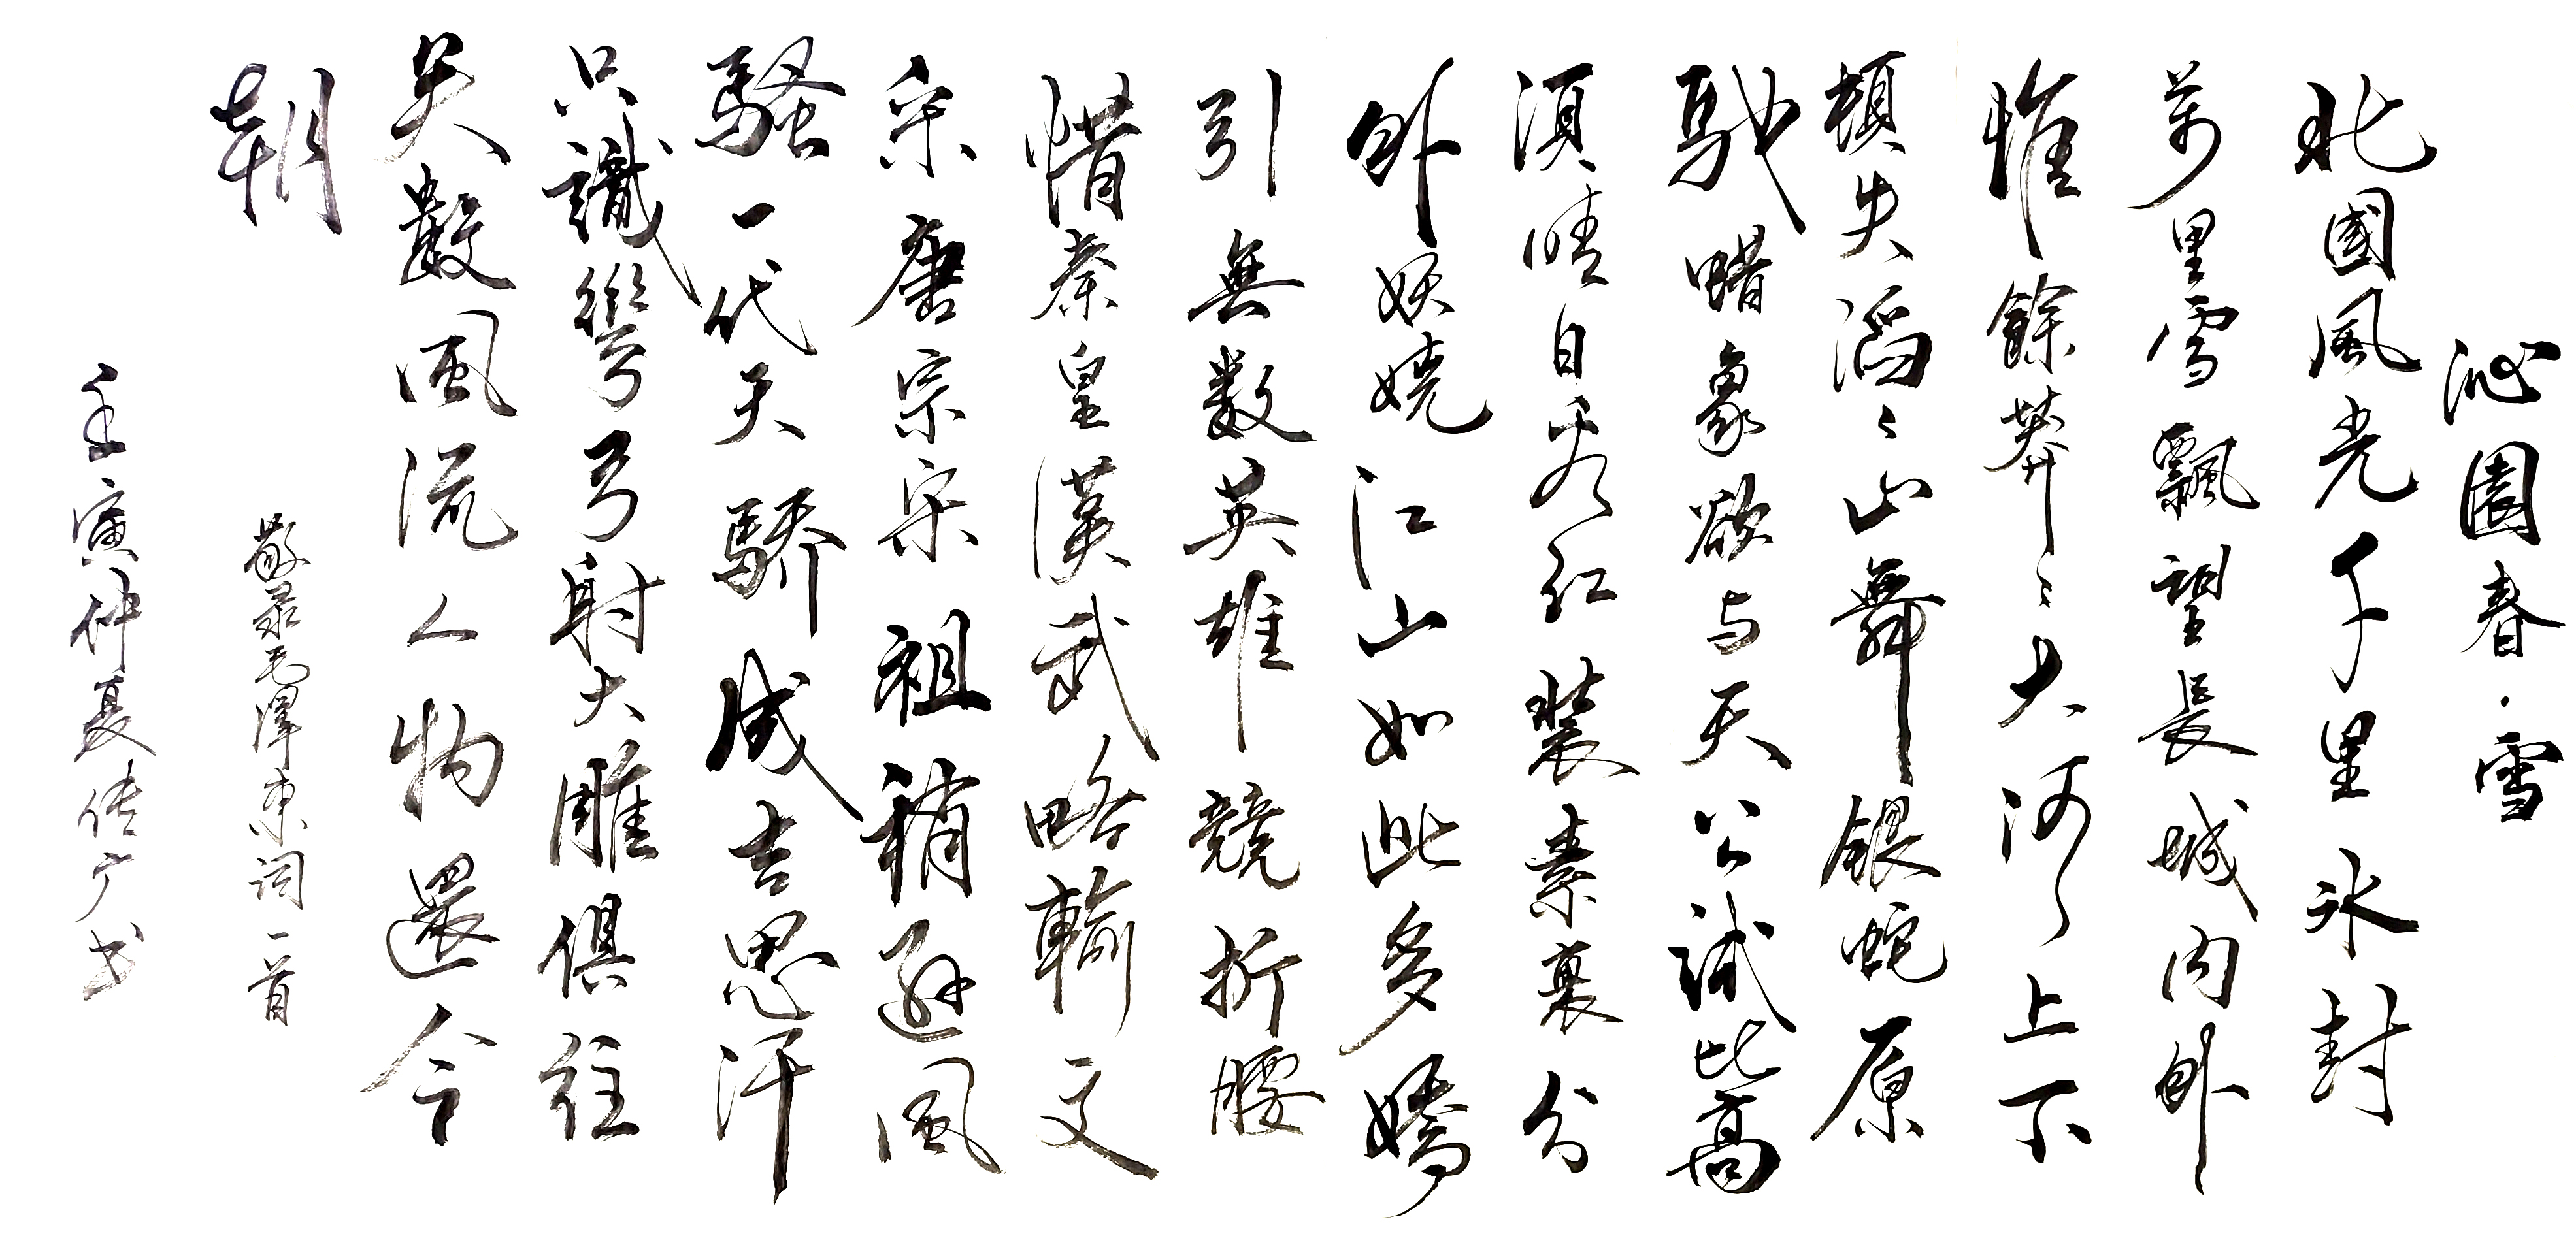 沁園春·雪
北國風光千里冰封
萬里雪飄望長城内外
惟餘莽々大河上下
頓失滔々山舞銀蛇原
馳蜡象欲与天公試比高
須晴日看红裝素裹分
外妖嬈江山如此多嬌
引無数英雄競折腰
惜秦皇漢武略輸文
采唐宗宋祖稍遜風
騷一代天驕成吉思汗
只識彎弓射大雕俱往
矣數風流人物還今
朝
敬录毛澤東词一首
壬寅仲夏传广书